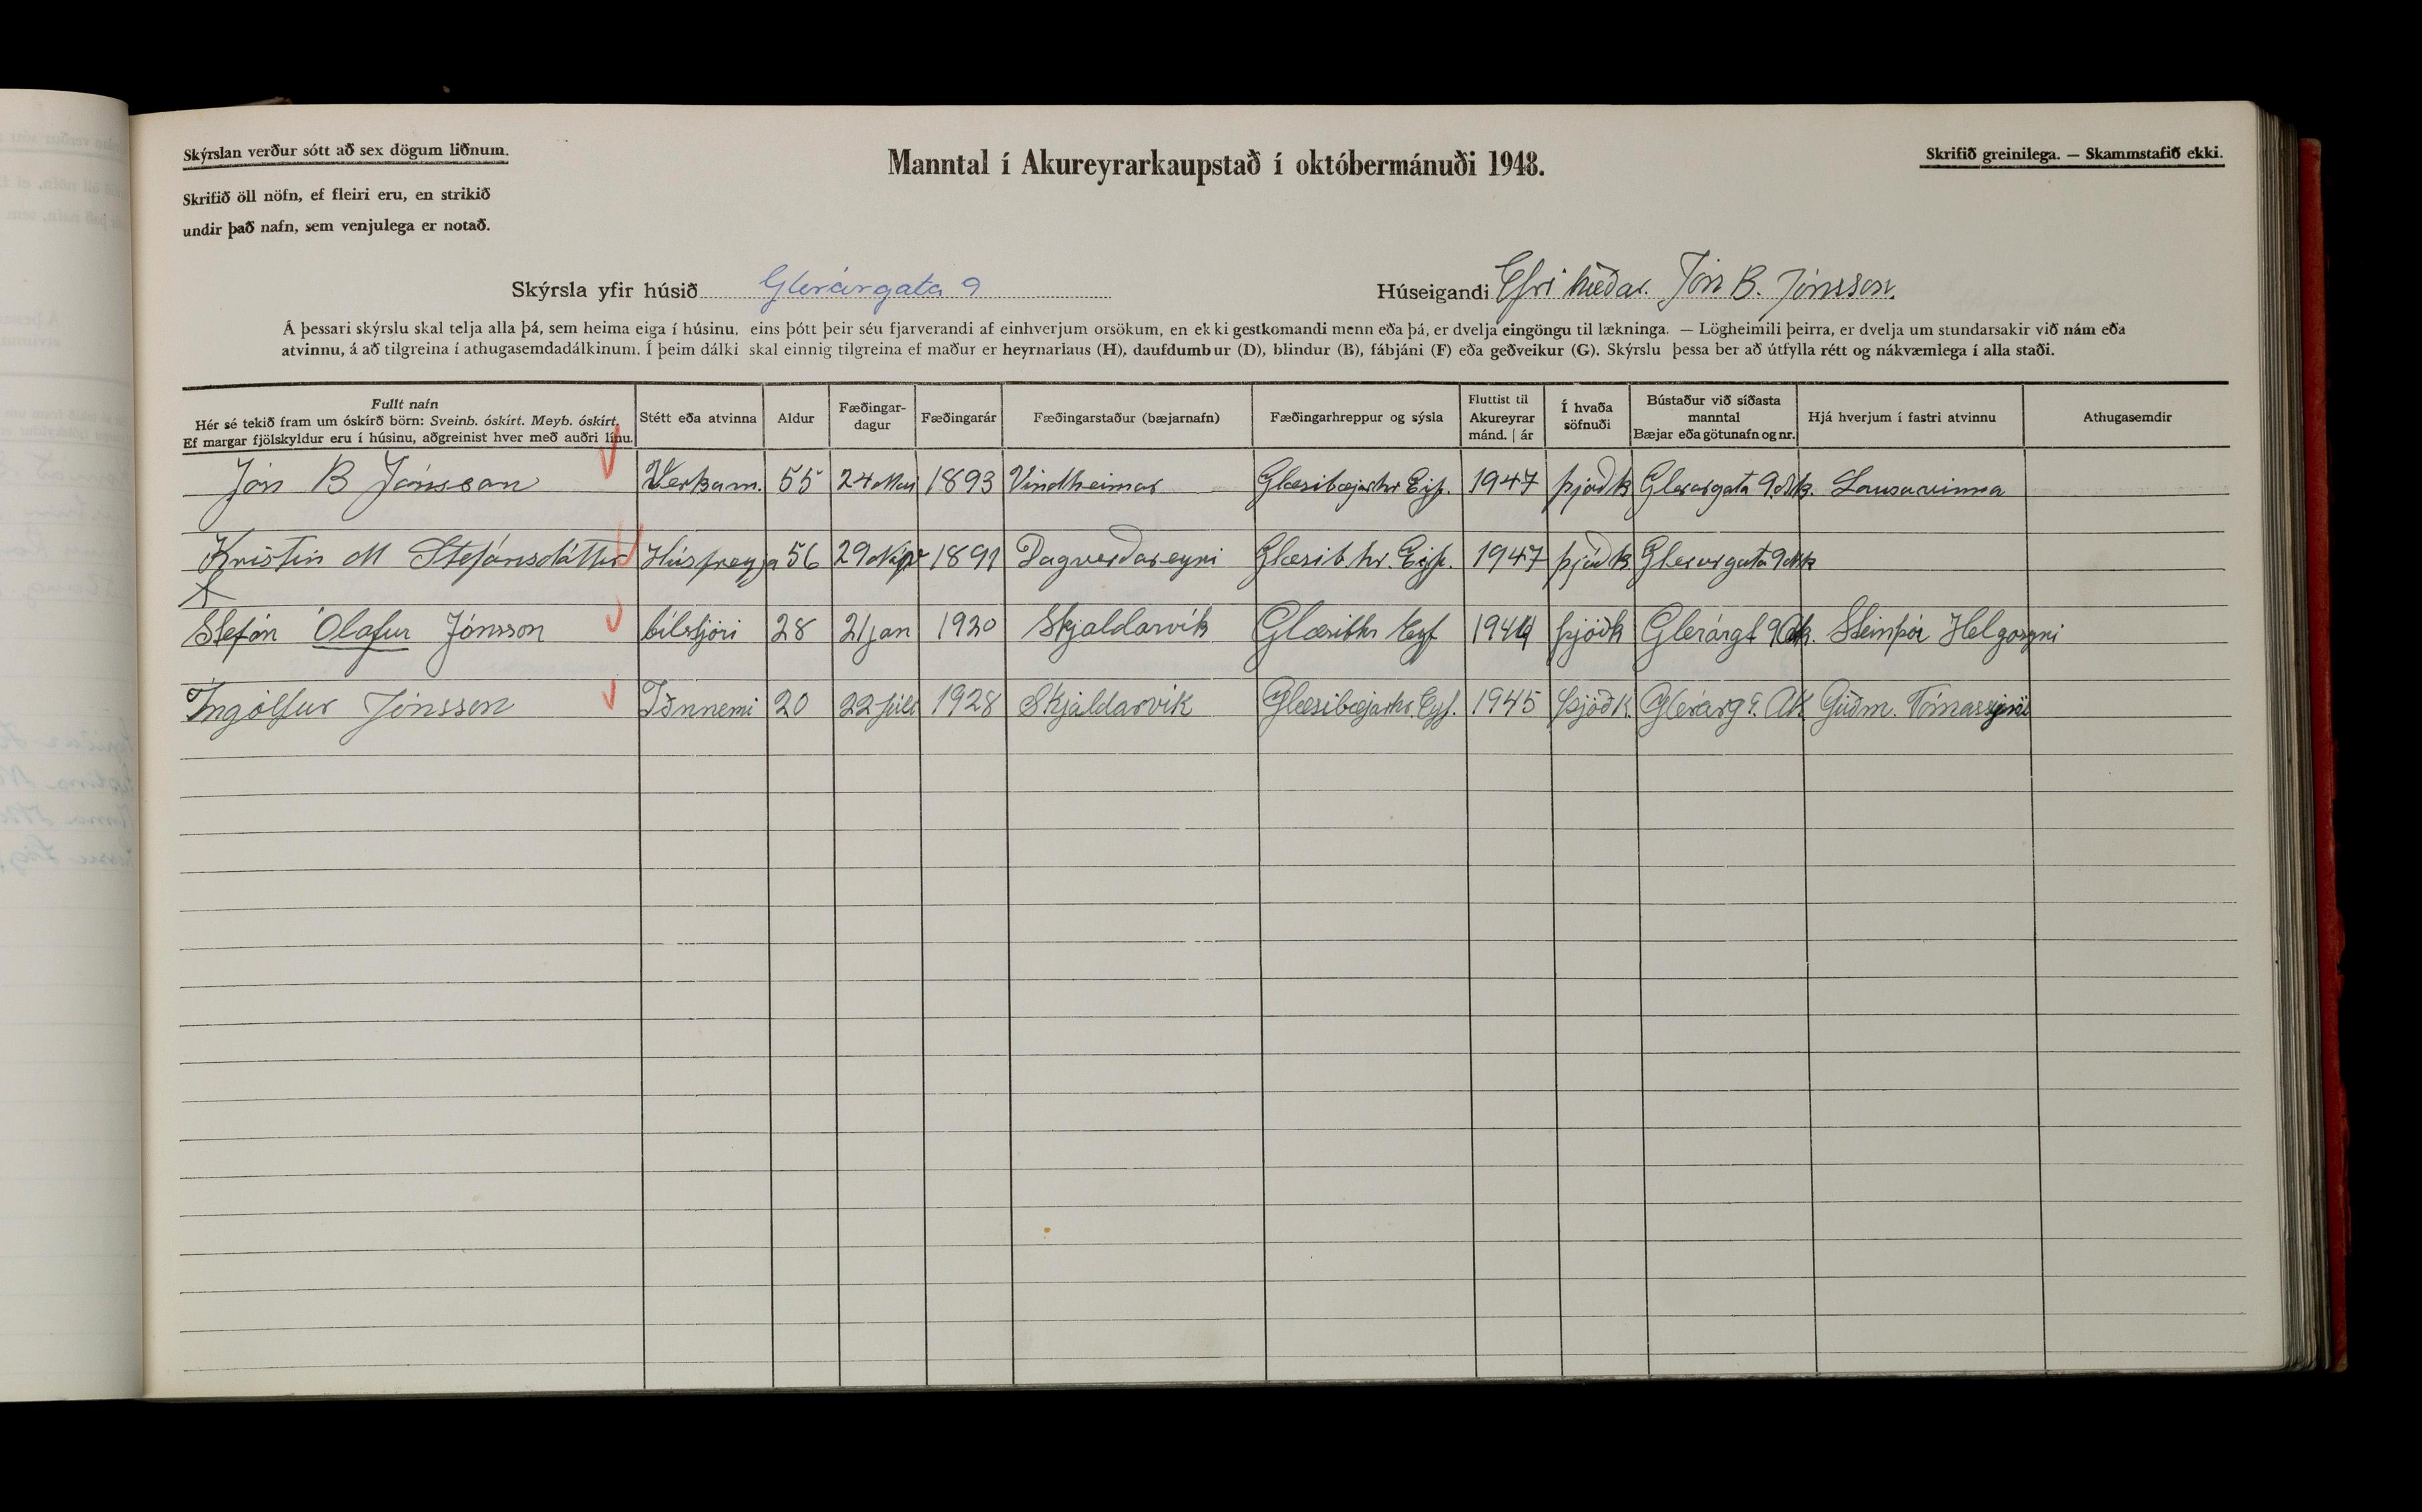 Skýrslan verður sótt að sex dögum liðnum.
Manntal í Akureyrarkaupstað í októbermánuði 1948.
Skrifið greinilega. — Skammstafið ekki.
Skrifið öll nöfn, ef fleiri eru, en strikið
undir það nafn, sem venjulega er notað.
Skýrsla yfir húsið Glerárgata 9
Húseigandi Efri hæðar. Jón B. Jónsson.
Á þessari skýrslu skal telja alla þá, sem heima eiga í húsinu, eins þótt þeir séu fjarverandi af einhverjum orsökum, en ekki gestkomandi menn eða þá, er dvelja eingöngu til lækninga. — Lögheimili þeirra, er dvelja um stundarsakir við nám eða
atvinnu, á að tilgreina í athugasemdadálkinum. Í þeim dálki skal einnig tilgreina ef maður er heyrnarlaus (H), daufdumbur (D), blindur (B), fábjáni (F) eða geðveikur (G). Skýrslu þessa ber að útfylla rétt og nákvæmlega í alla staði.
Fullt nafn
Hér sé tekið fram um óskírð börn: Sveinb. óskírt. Meyb. óskírt.
Ef margar fjölskyldur eru í húsinu, aðgreinist hver með auðri línu.
Stétt eða atvinna
Aldur
Fæðingar-
dagur
Fæðingarár
Fæðingarstaður (bæjarnafn)
Fæðingarhreppur og sýsla
Fluttist til
Akureyrar
mánd. | ár
Í hvaða
söfnuði
Bústaður við síðasta
manntal
Bæjar eða götunafn og nr.
Hjá hverjum í fastri atvinnu
Athugasemdir
Jón B Jónsson Verkam. 55 24 Mai 1893 Vindheimar Glæsibæjarhr Eyf. 1947 þjóðk Glerargata 9 Ak. Lausavinna
Kristín M Stefánsdóttir Húsfreyja 56 29 1891 Dagverðareyri Glæsib.hr. Eyf. 1947 þjóðk Glerargata 9 Ak
Stefán Ólafur Jónsson bílstjóri 28 21 jan 1920 Skjaldarvík Glæsibhr Eyf 1944 þjóðk Glerárgt 9 Ak. Steinþór Helgasyni
Ingólfur Jónsson Iðnnemi 20 22 júlí 1928 Skjaldarvík Glæsibæjarhr. Eyf. 1945 Þjóðk. Glerárg 9. AK Guðm. Tómassyni